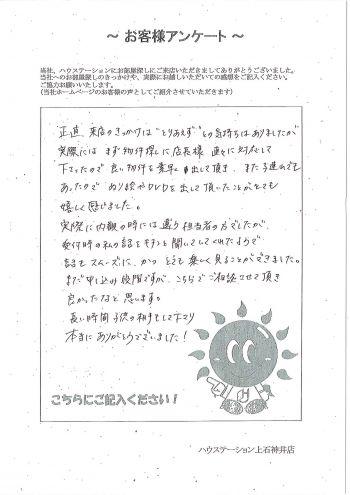 ～ お客様アンケート ～
当社、ハウステーションにお部屋探しにご来店いただきましてありがとうございました。
当社へのお部屋探しのきっかけや、実際にお越しいただいての感想をご記入ください。
ご協力お願いいたします。
(当社ホームページのお客様の声としてご紹介させていただきます)
正直 来店のきっかけは"とりあえず"との気持ちはありましたが
実際には まず物件探しに店長様 直々に対応して
下さったので 良い物件を素早く出して頂き、また子連れでも
あったので ぬり絵やDVDを出して頂いたことがとても
嬉しく感じました。
実際に内観の時には違う担当者の方でしたが、
受付時の私の話をキチンと聞いてしてくれたようで
話もスムーズに、かつ とても楽しく見ることができました。
まだ申し込み段階ですが、こちらでご相談させて頂き
良かったなと思います。
長い時間子供の相手もして下さり
本当にありがとうございました！
こちらにご記入ください！
ハウステーション上石神井店